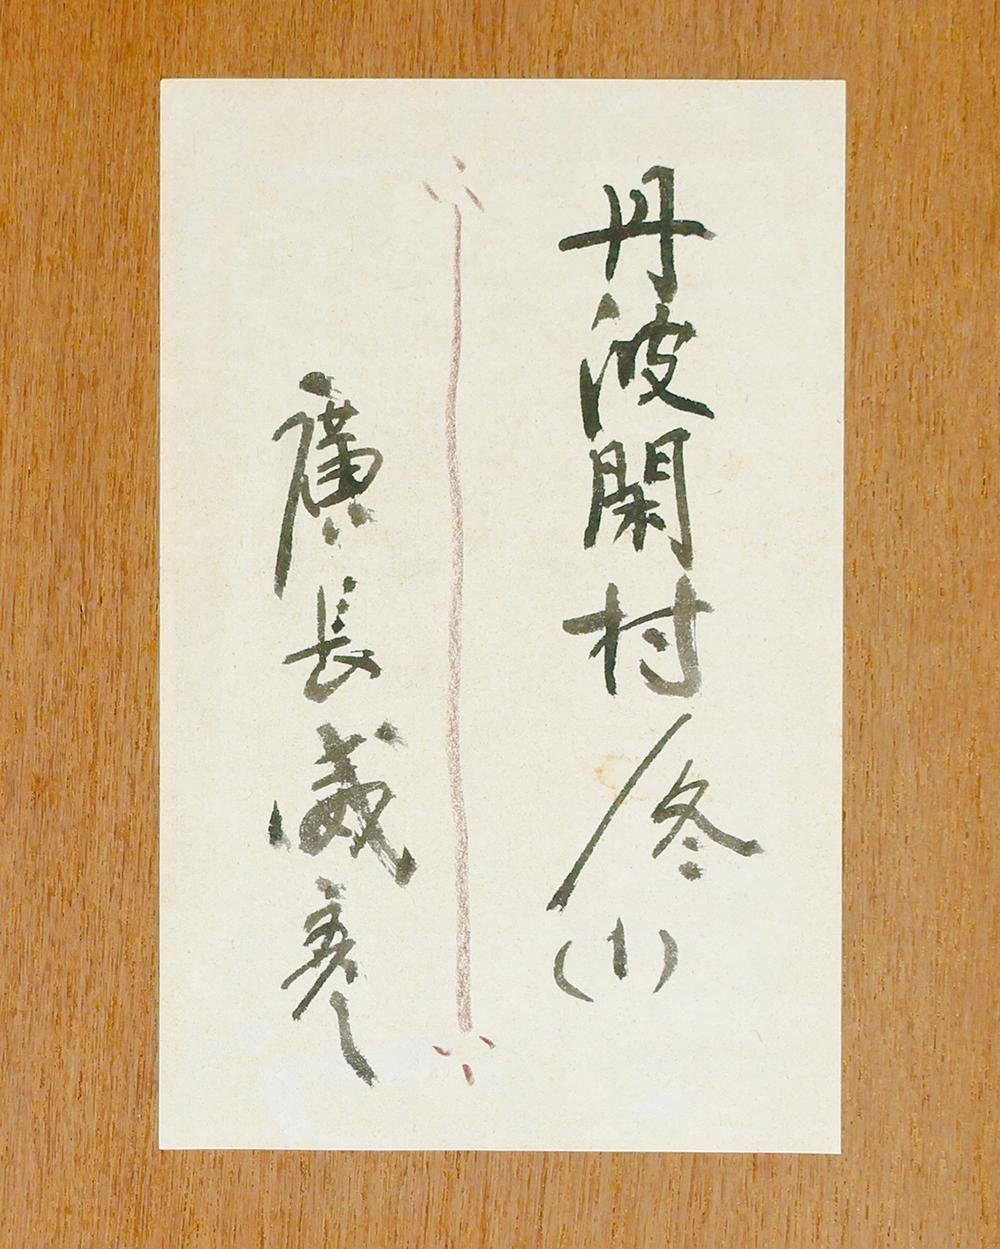 丹波閑村冬(1)
廣長威彦